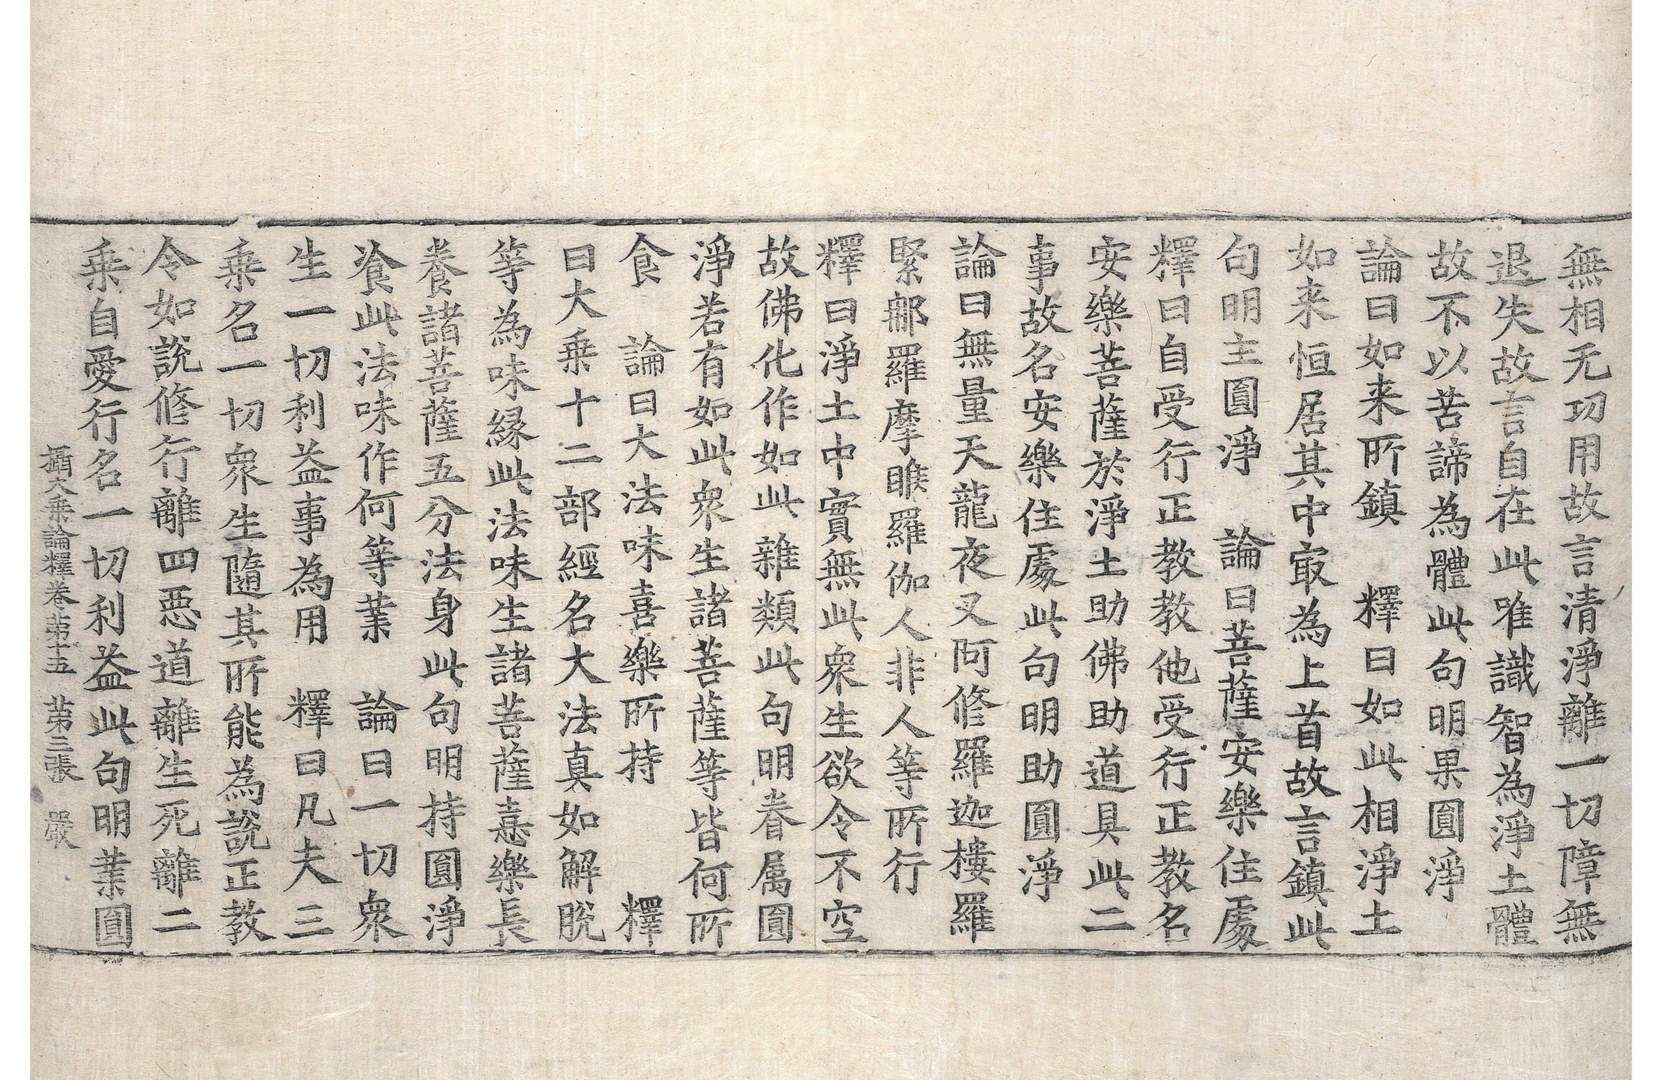 無相无功用故言清淨離一切障無
退失故言自在此唯識智為淨土體
故不以苦諦為體此句明果圓淨
論曰如来所鎮　釋曰如此相淨土
如来恒居其中㝡為上首故言鎮此
句明主圓淨　論曰菩薩安樂住處
釋曰自受行正教教他受行正教名
安樂菩薩於淨土助佛助道具此二
事故名安樂住處此句明助圓淨
論曰無量天龍夜叉阿修羅迦樓羅
緊那羅摩睺羅伽人非人等所行
釋曰淨土中實無此衆生欲令不空
故佛化作如此雜類此句明眷属圓
淨若有如此衆生諸菩薩等皆何所
食　論曰大法味喜樂所持　釋
曰大乗十二部經名大法真如解脫
等為味緣此法味生諸菩薩憙樂長
養諸菩薩五分法身此句明持圓淨
飡此法味作何等業　論曰一切衆
生一切利益事為用　釋曰凡夫三
乗名一切衆生隨其所能為說正教
令如說修行離四惡道離生死離二
乗自愛行名一切利益此句明業圓
攝大乗論釋卷苐十五　苐三張　嚴